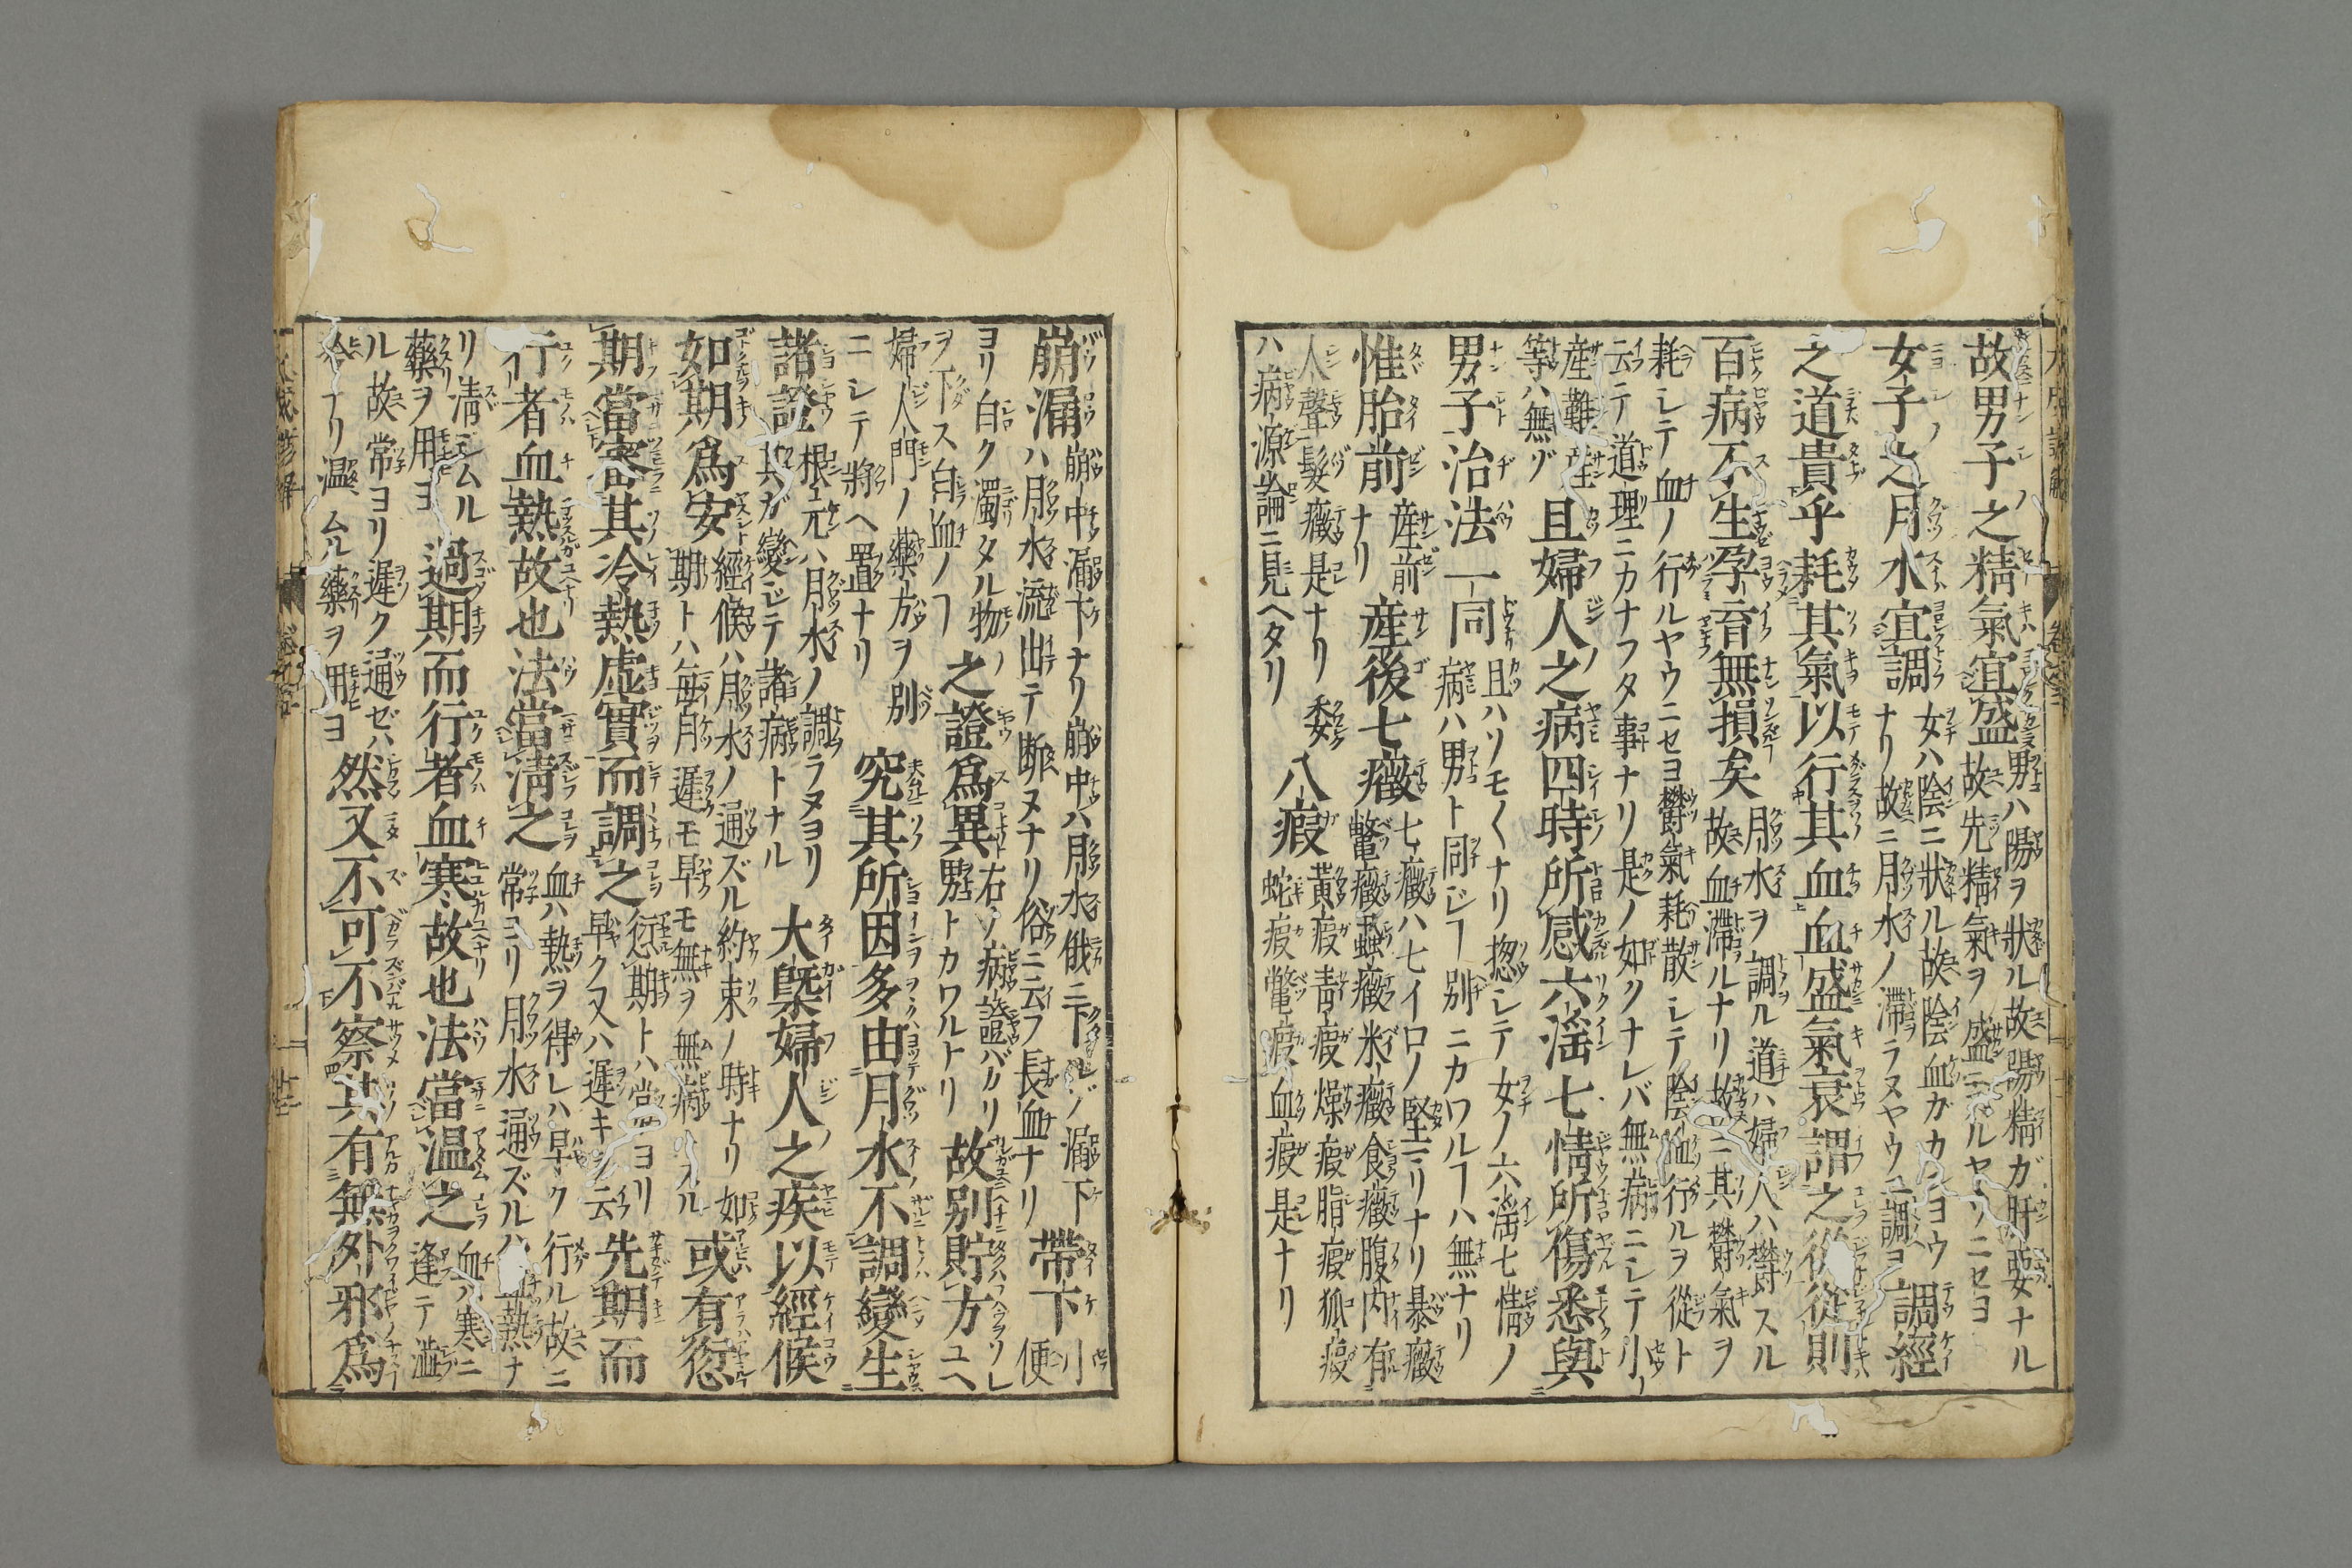 故男子之精氣宜盛 男ハ陽ヲ狀ル故ニ陽精ガ肝要ナル
故先精氣ヲ盛ニスルヤウニセヨ
女子之月水宜調 女ハ陰ニ狀ル故陰血ガカンヨウ
ナリ故ニ月水ノ滯ラヌヤウニ調ヨ 調經
之道貴乎耗其氣以行其血血盛氣衰謂之從從則
百病不生孕育無損矣 月水ヲ調ル道ハ婦人ハ欝スル
故血滯ルナリ故ニ其欝氣ヲ
耗シテ血ノ行ルヤウニセヨ欝氣耗散シテ陰血行ルヲ從ト
云テ道理ニカナフタ事ナリ是ノ如クナレバ無病ニシテ小
産難産
等ハ無ゾ 且婦人之病四時所感六淫七情所傷悉與
男子治法一同 且ハソモ〱ナリ惣シテ女ノ六淫七情ノ
病ハ男ト同ジヿ別ニカワルヿハ無ナリ
惟胎前 産前
ナリ 産後七癥 七癥ハ七イロノ堅リナリ暴癥
鼈癥蝨癥米癥食癥腹内有
人聲髮癥是ナリ委
ハ病源論ニ見ヘタリ 八瘕 黃瘕靑瘕燥瘕脂瘕狐瘕
蛇瘕鼈瘕血瘕是ナリ
崩漏 崩中漏下ナリ崩中ハ月水俄ニ下ルゾ漏下
ハ月水流出テ断ヌナリ俗ニ云フ長血ナリ 帶下 小
便
ヨリ白ク濁タル物
ヲ下ス白血ノヿ 之證爲異 右ノ病證バカリ
男トカワルトリ 故別貯方 ユヘ
婦人門ノ藥方ヲ別
ニシテ將ヘ置ナリ 究其所因多由月水不調變生
諸證 根元ハ月水ノ調ラヌヨリ
其ガ變ジテ諸病トナル 大槩婦人之疾以經候
如期爲安 經候ハ月水ノ通ズル約束ノ時ナリ如
期トハ每月遲モ早モ無ヲ無病トスル 或有愆
期當審其冷熱虛實而調之 愆期トハ常ヨリ
早ク又ハ遲キヲ云 先期而
行者血熱故也法當淸之 血ハ熱ヲ得レハ早ク行ル故ニ
常ヨリ月水通ズルハ血熱ナ
リ淸シムル
藥ヲ用ヨ 過期而行者血寒故也法當温之 血ハ寒ニ
逢テ澁
ル故常ヨリ遲ク通ゼハ
冷ナリ温ムル藥ヲ用ヨ 然又不可不察其有無外邪爲